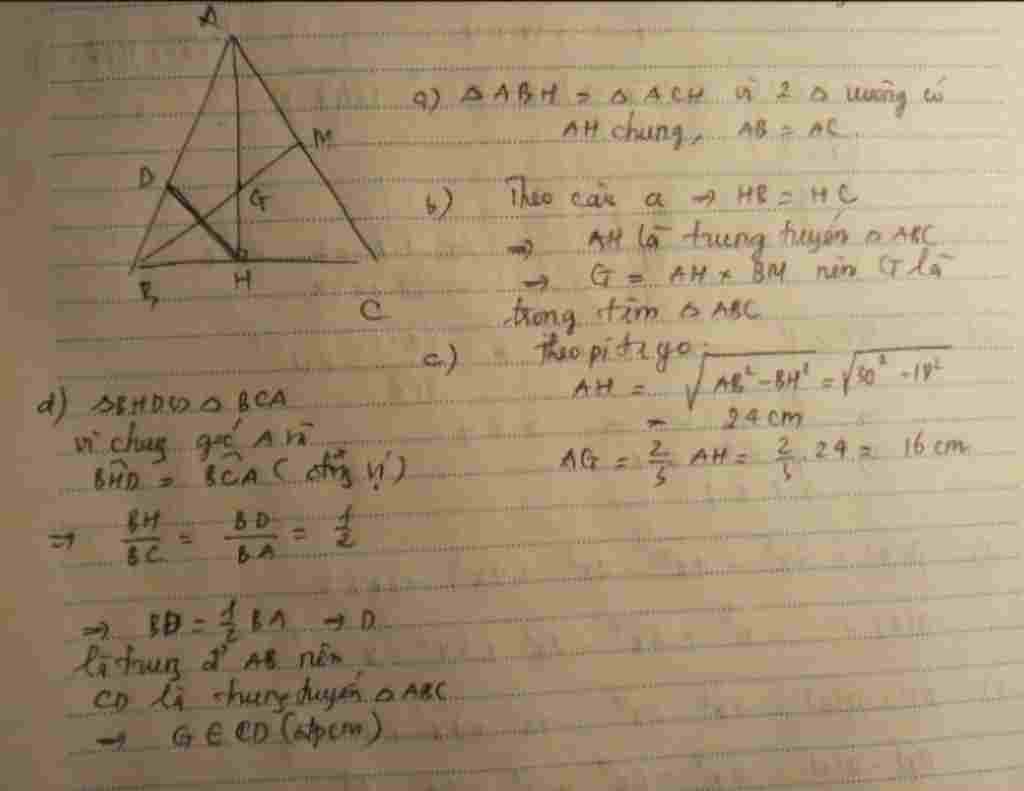 A
D
M
G
B
H
C
a) Δ ABH = Δ ACH vì 2 Δ vuông có
AH chung, AB = AC.
b) Theo câu a → HB = HC
⇒ AH là trung tuyến Δ ABC
→ G = AH × BM nên G là
trọng tâm Δ ABC
c) Theo pi ta go:
AH = √AB² - BH² = √30² - 18²
= 24 cm
AG = 2/3 AH = 2/3 . 24 = 16 cm
d) ΔBHD ∽ Δ BCA
vì chung góc A và
BĤD = BĈA (đồng vị)
⇒ BH/BC = BD/BA = 1/2
⇒ BD = 1/2 BA → D
là trung đ' AB nên
CD là trung tuyến Δ ABC
→ G ∈ CD (đpcm)